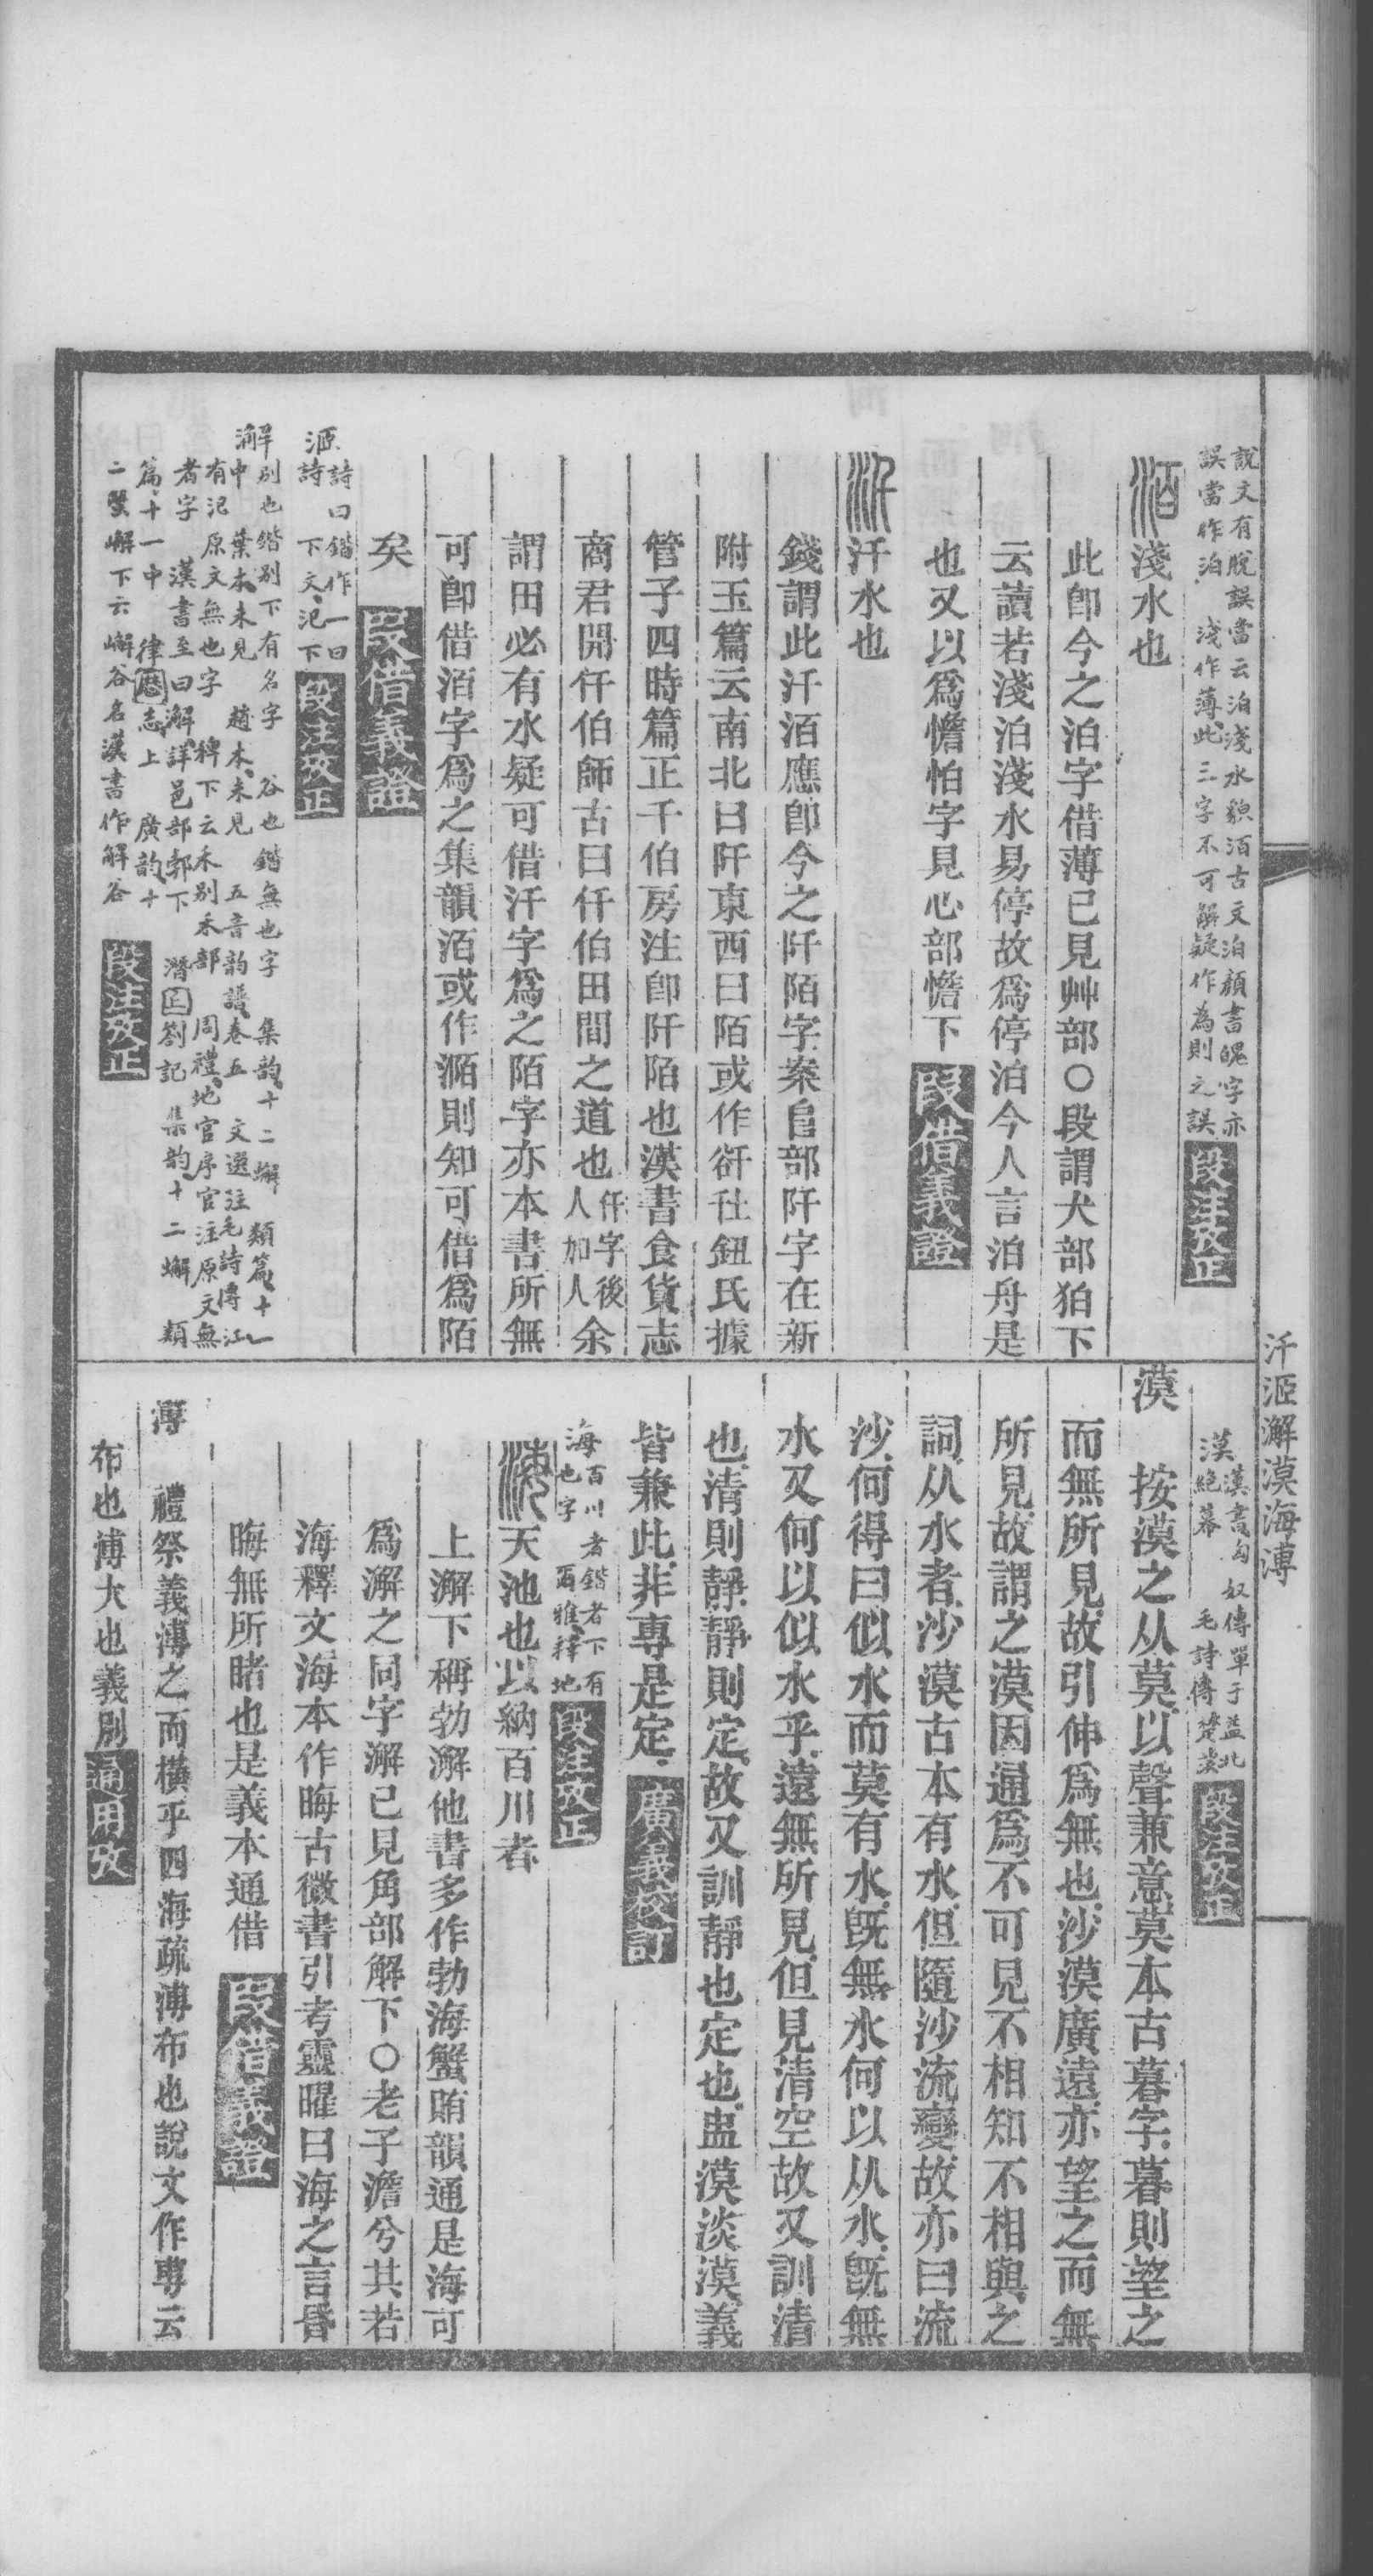 汘洍澥漠海溥
說文有脫誤當云泊淺水貌洦古文泊顏書皅字亦
誤當作泊 淺作薄此三字不可解疑作為則之誤 段注攷正
洦 淺水也
此卽今之泊字借薄已見艸部〇段謂犬部狛下
云讀若淺泊淺水易停故爲停泊今人言泊舟是
也又以爲憺怕字見心部憺下 段借義證
汘 汘水也
錢謂此汘洦應卽今之阡陌字案𨸏部阡字在新
附玉篇云南北曰阡東西曰陌或作𧗴社鈕氏據
管子四時篇正千伯房注卽阡陌也漢書食貨志
商君開仟伯師古曰仟伯田間之道也仟字後人加人余
謂田必有水疑可借汘字爲之陌字亦本書所無
可卽借洦字爲之集韻洦或作㴘則知可借爲陌
矣 段借義證
洍 詩曰鍇作一曰
詩 下文、汜下 段注攷正
澥 別也鍇別下有名字 谷也鍇無也字 集韵、十二蠏 類篇、十一
中 葉本、未見 趙本、未見 五音韵譜、卷五 文選注毛詩傳江
有汜原文無也字 稗下云禾別禾部 周禮、地官序官注原文無
者字 漢書至曰解詳邑部郣下 潛丘劄記 集韵十二蠏 類
篇、十一中 律歷志、上 廣韵、十
二蟹嶰下云嶰谷名漢書作解谷 段注攷正
漠 漢書匈奴傳單于益北
絕幕 毛詩傳楚茨 段注攷正
漠 按漠之从莫以聲兼意莫本古暮字暮則望之
而無所見故引伸爲無也沙漠廣遠亦望之而無
所見故謂之漠因通爲不可見不相知不相與之
詞从水者沙漠古本有水但隨沙流變故亦曰流
沙何得曰似水而莫有水旣無水何以从水旣無
水又何以似水乎遠無所見但見清空故又訓清
也清則靜靜則定故又訓靜也定也盅漠淡漠義
皆兼此非專是定 廣義校訂
海 百川者鍇者下有
也字 爾雅、釋地 段注攷正
海 天池也以納百川者
上澥下稱勃澥他書多作勃海蟹賄韻通是海可
爲澥之同字澥已見角部解下〇老子澹兮其若
海釋文海本作晦古微書引考靈曜曰海之言昏
晦無所睹也是義本通借 段借義證
溥 禮祭義溥之而橫乎四海疏溥布也說文作尃云
布也溥大也義別 通用攷